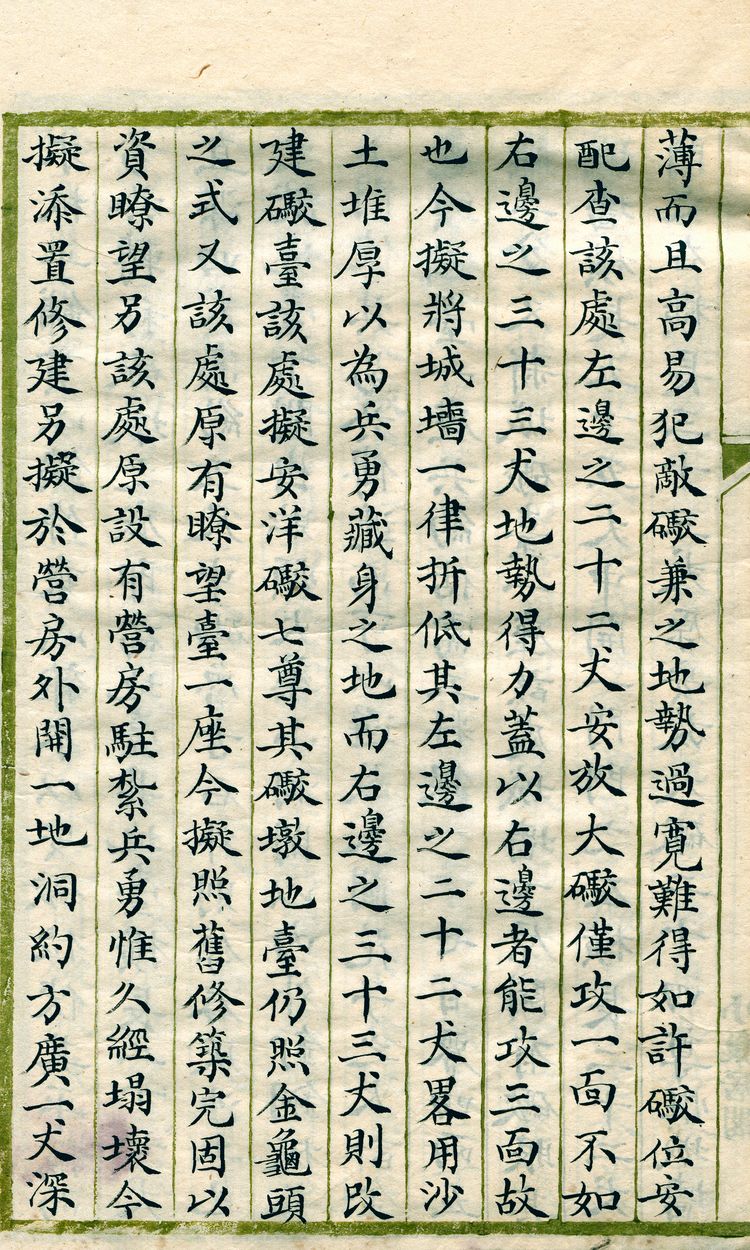 薄而且高易犯敵礮兼之地勢過寬難得如許礮位安
配查該處左邊之二十二丈安放大礮僅攻一面不如
右邊之三十三丈地勢得力蓋以右邊者能攻三面故
也今擬將城墻一律折低其左邊之二十二丈畧用沙
土堆厚以為兵勇藏身之地而右邊之三十三丈則改
建礮臺該處擬安洋礮七尊其礮墩地臺仍照金龜頭
之式又該處原有瞭望臺一座今擬照舊修築完固以
資瞭望另該處原設有營房駐紮兵勇惟久經塌壞今
擬添置修建另擬於營房外開一地洞約方廣一丈深